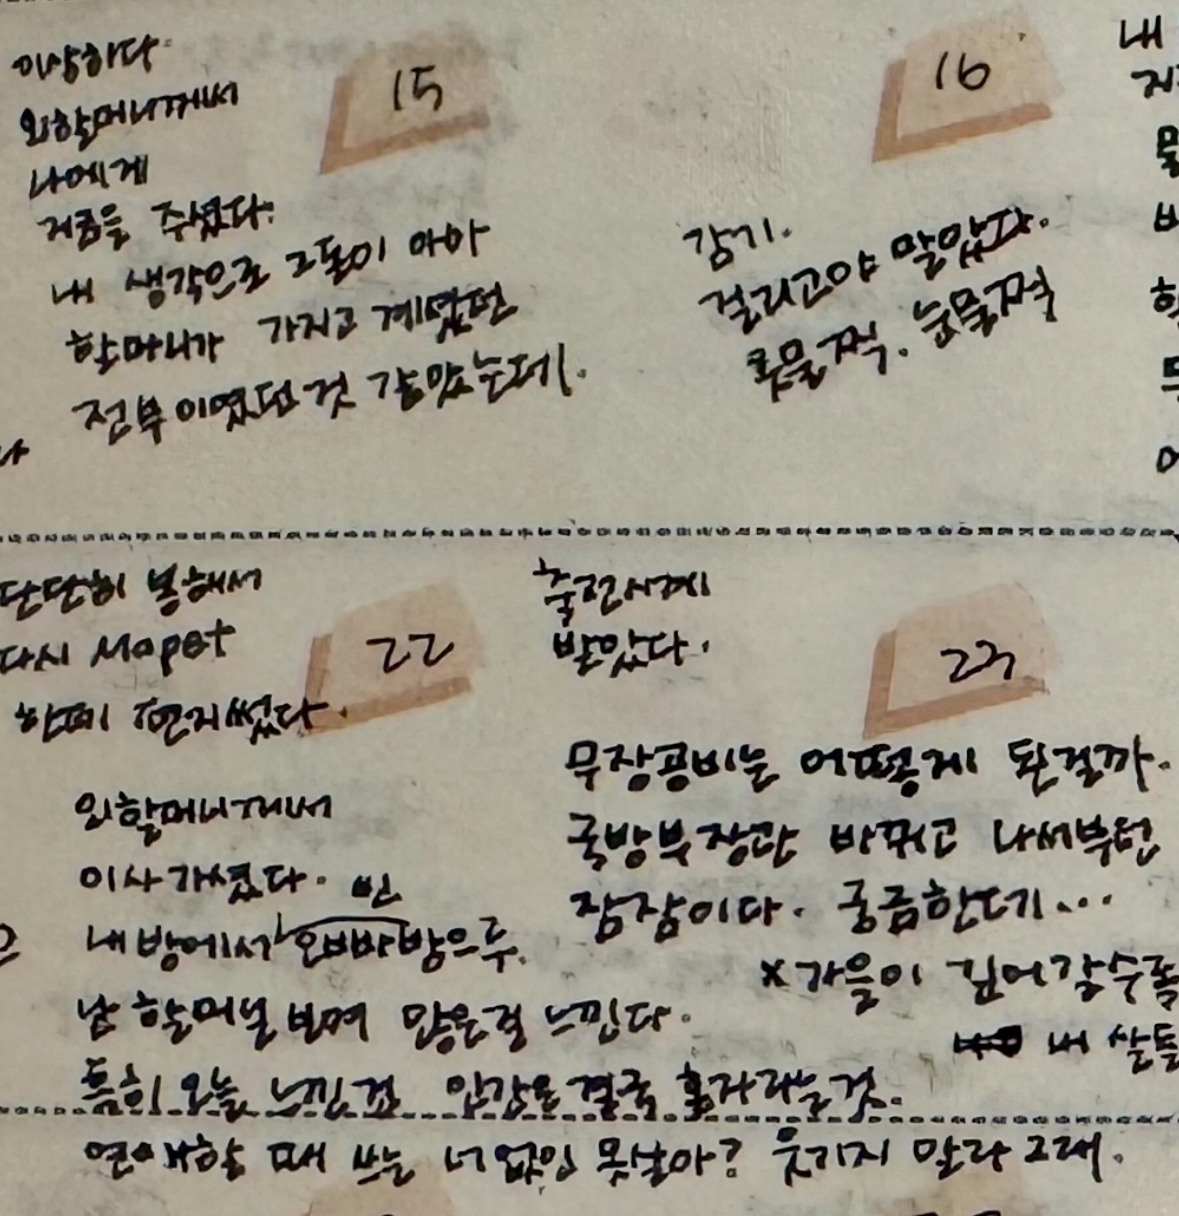 이상하다.
15
외할머니께서
나에게
저금을 주셨다.
내 생각으로 그돈이 아마
할머니가 가지고 계셨던
전부이였던것 같았는데.
16
감기.
걸리고야 말았다.
콧물 쩍. 눈물 쩍
내
단단히 봉해서
22
다시 Mapet
한테 편지썼다.
외할머니께서
이사가셨다. 빈
내 방에서 오빠방으루.
난 할머닐 보며 많은걸 느낀다.
특히 오늘 느낀건 인간은 결국 혼자라는것.
연애할 때 쓰는 너없인 못살아? 웃기지 말라 그래.
23
받았다.
무장공비는 어떻게 된걸까.
국방부장관 바뀌고 나서부턴
잠잠이다. 궁금한데기...
x 가을이 깊어갈수록
내 살들